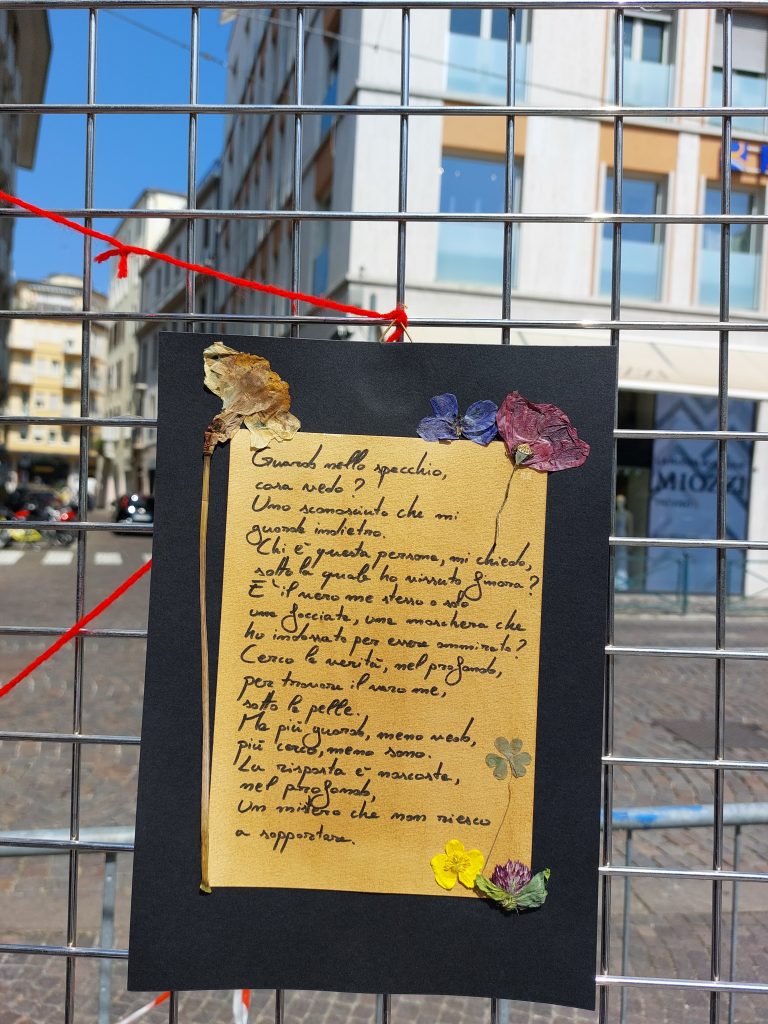 Guardo nello specchio,
cosa vedo?
Uno sconosciuto che mi
guarda indietro.
Chi è questa persona, mi chiedo,
sotto la quale ho vissuto finora?
È il vero me stesso o solo
una facciata, una maschera che
ho indossato per essere ammirato?
Cerco la verità, nel profondo,
per trovare il vero me,
sotto la pelle.
Ma più guardo, meno vedo,
più cerco, meno sono.
La risposta è nascosta,
nel profondo,
Un mistero che non riesco
a sopportare.